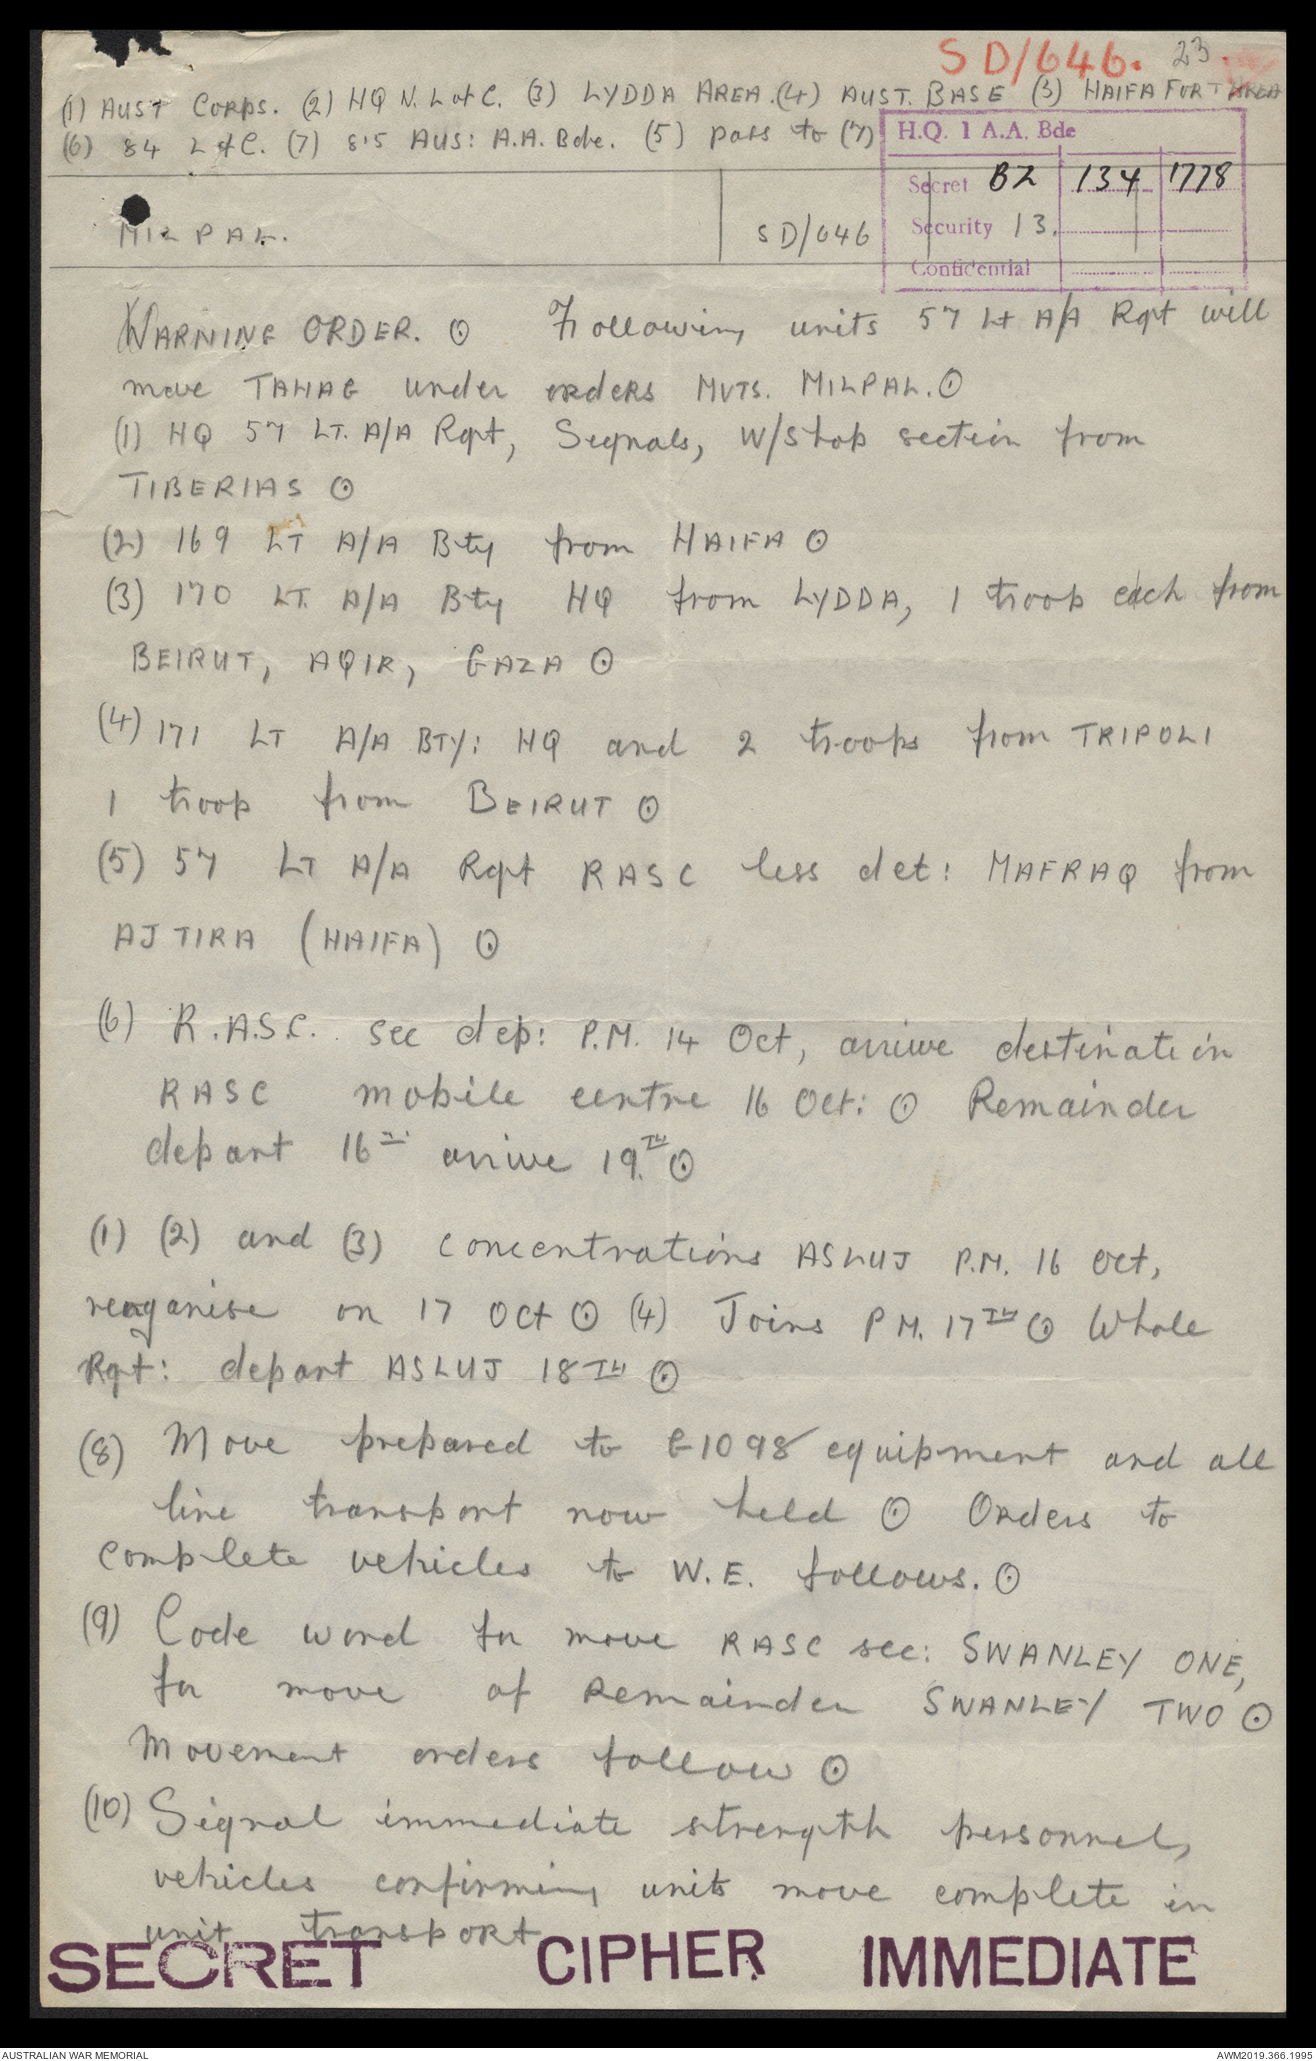 SD/646. 23.
(1) AUST CORPS. (2) HQ N. L of C. (3) LYDDA AREA. (4) AUST. BASE (5) HAIFA FORT AREA
(6) 84 L of C. (7) 8.15 AUS: A.A. Bde. (5) pass to (7)
H.Q. 1 A.A. Bde
Secret BZ 134 1778
Security 13.
Confidential
MILPAL.
SD/646
WARNING ORDER. ⊙ Following units 57 Lt A/A Rgt will
move TAHAG under orders MVTS. MILPAL. ⊙
(1) HQ 57 LT. A/A Rgt, Signals, W/Shop section from
TIBERIAS ⊙
(2) 169 LT A/A Bty from HAIFA ⊙
(3) 170 LT. A/A Bty HQ from LYDDA, 1 troop each from
BEIRUT, AQIR, GAZA ⊙
(4) 171 LT A/A BTY: HQ and 2 troops from TRIPOLI
1 troop from BEIRUT ⊙
(5) 57 LT A/A Rgt RASC less det: MAFRAQ from
AJTIRA (HAIFA) ⊙
(6) R.A.S.C. sec dep: P.M. 14 Oct, arrive destination
RASC mobile centre 16 Oct: ⊙ Remainder
depart 16TH arrive 19.TH ⊙
(1) (2) and (3) concentrations ASLUJ P.M. 16 Oct,
reorganise on 17 Oct ⊙ (4) Joins PM. 17TH ⊙ Whole
Rgt: depart ASLUJ 18TH ⊙
(8) Move prepared to G1098 equipment and all
line transport now held ⊙ Orders to
complete vehicles to W.E. follows. ⊙
(9) Code word for move RASC sec: SWANLEY ONE,
for move of Remainder SWANLEY TWO ⊙
Movement orders follow ⊙
(10) Signal immediate strength personnel,
vehicles confirming units move complete in
unit transport
SECRET CIPHER IMMEDIATE
AUSTRALIAN WAR MEMORIAL
AWM2019.366.1995